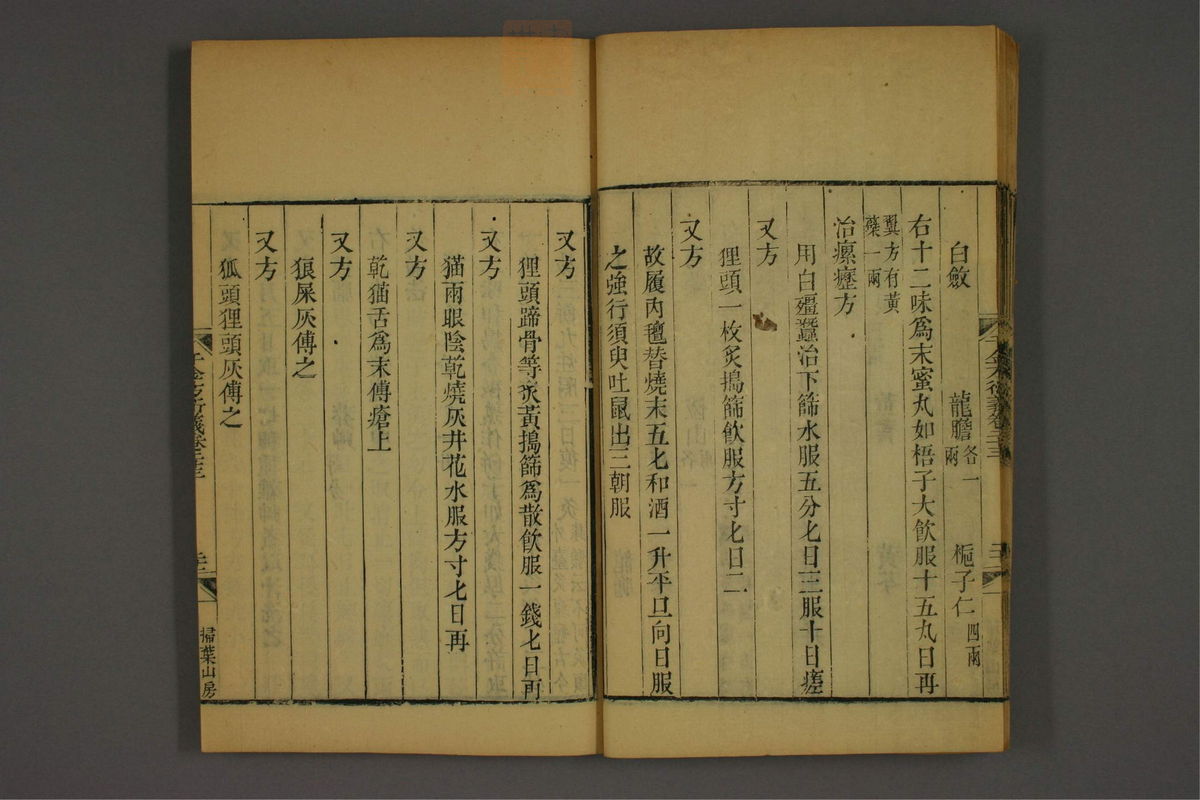 白斂 龍膽各一兩 梔子仁四兩
右十二味爲末蜜丸如梧子大飮服十五丸日再
翼方有黃
蘗一兩
治瘰癧方
用白殭蠶治下篩水服五分匕日三服十日瘥
又方
狸頭一枚炙搗篩飮服方寸匕日二
又方
故履內氊替燒末五匕和酒一升平旦向日服
之強行須臾吐鼠出三朝服
又方
狸頭蹄骨等炙黃搗篩爲散飮服一錢匕日再
又方
猫兩眼陰乾燒灰井花水服方寸匕日再
又方
乾猫舌爲末傅瘡上
又方
狼屎灰傅之
又方
狐頭狸頭灰傅之
掃葉山房